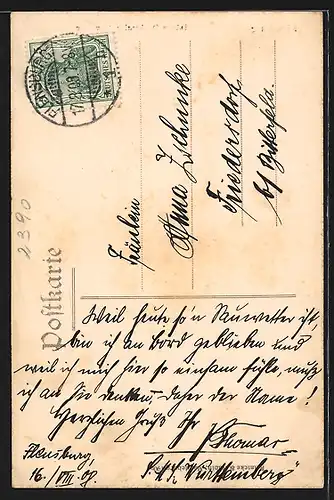 FLENSBURG
17.8.09
Postkarte
2390
Fräulein
Anna Zschunke
Friedersdorf
b/ Bitterfeld.
Weil heute so'n Sauwetter ist,
bin ich an Bord geblieben und
weil ich mich hier so einsam fühle, muß
ich an Sie denken, daher der Name!
Herzlichen Gruß Ihr
Thomas
S.M.S. "Württemberg"
Flensburg,
16./VIII.09.